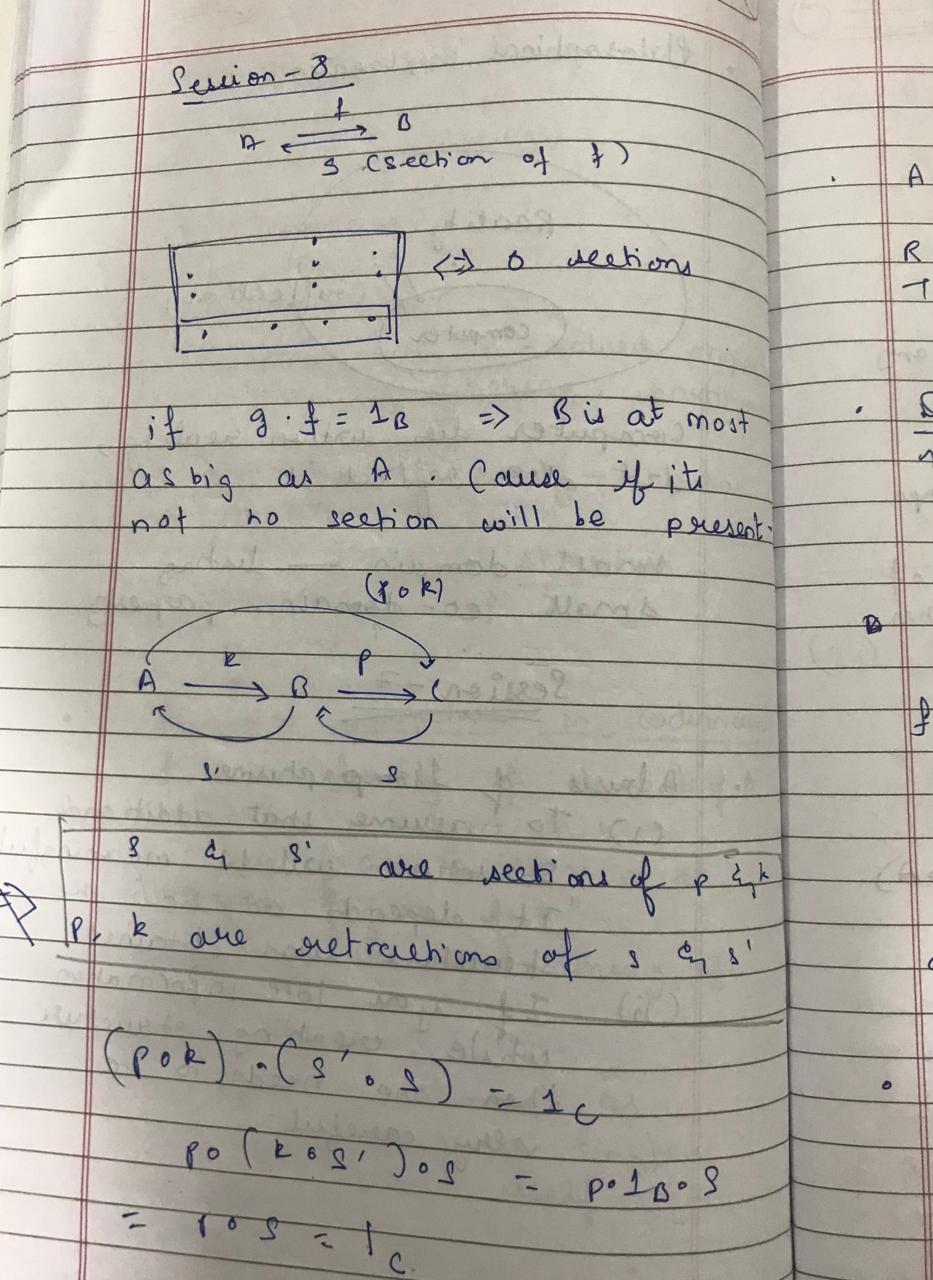 Session - 8
f
A ⇄ B
s (section of f)
<=> 0 sections
if g . f = 1B => B is at most
as big as A . Cause if its
not no section will be present.
(p o k)
k p
A → B → C
s' s
s & s' are sections of p & k
p, k are retractions of s & s'
(p o k) . (s' o s) = 1C
p o (k o s') o s = p o 1B o s
= p o s = 1C.
A
R
f